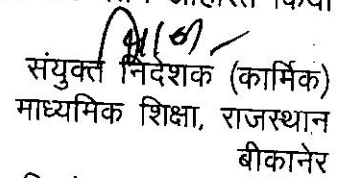 आहरित किया
संयुक्त निदेशक (कार्मिक)
माध्यमिक शिक्षा, राजस्थान
बीकानेर